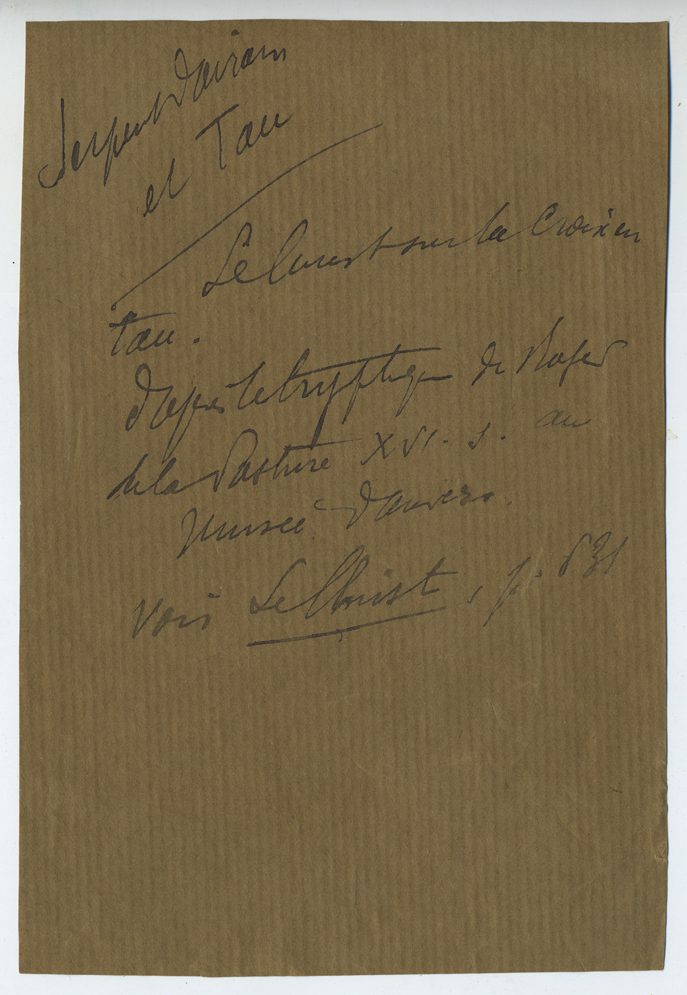 Serpent d'airain
et Tau
Le Christ sur la Croix en
tau.
d'après le tryptique de Roger
de la Pasture XVI. s. au
Musée d'Anvers.
Voir Le Christ, p. 631